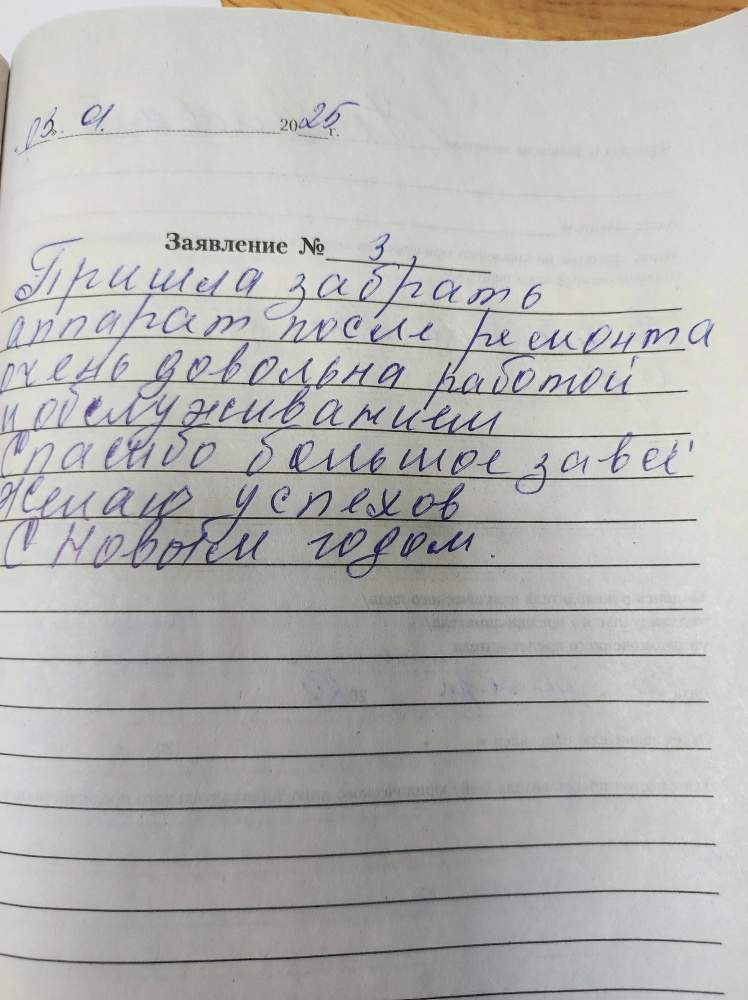 03. 01. 2025 г.
Заявление № 3
Пришла забрать
аппарат после ремонта
очень довольна работой
и обслуживанием
Спасибо большое за всё
Желаю успехов
С Новым годом.